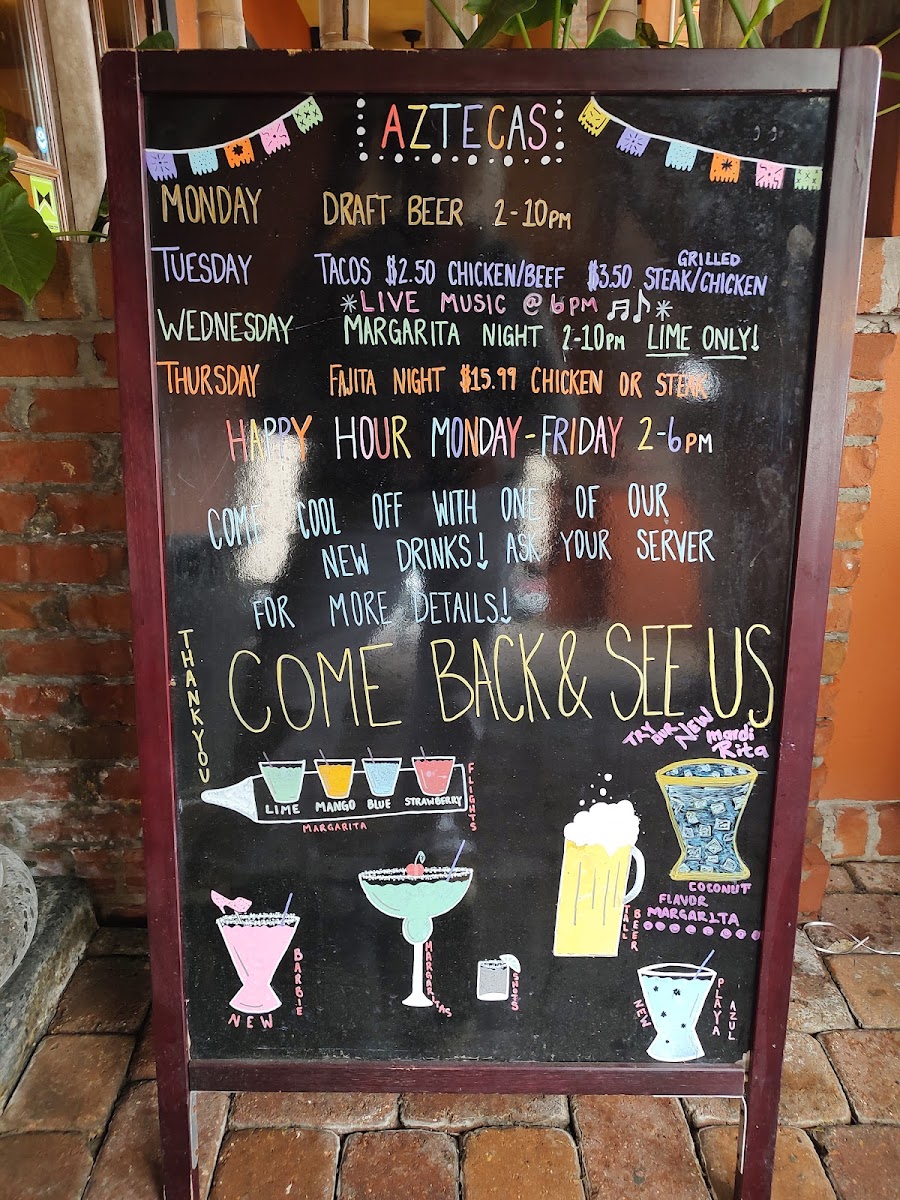 AZTECAS
MONDAY DRAFT BEER 2-10PM
TUESDAY TACOS $2.50 CHICKEN/BEEF $3.50 GRILLED STEAK/CHICKEN
*LIVE MUSIC @ 6PM *
WEDNESDAY MARGARITA NIGHT 2-10PM LIME ONLY!
THURSDAY FAJITA NIGHT $15.99 CHICKEN OR STEAK
HAPPY HOUR MONDAY-FRIDAY 2-6PM
COME COOL OFF WITH ONE OF OUR
NEW DRINKS! ASK YOUR SERVER
FOR MORE DETAILS!
THANK YOU
COME BACK & SEE US
TRY OUR NEW Mardi
Rita
LIME MANGO BLUE STRAWBERRY
MARGARITA
FLIGHTS
COCONUT
FLAVOR
MARGARITA
TALL
BEER
BARBIE
NEW
MARGARITAS
SHOTS
NEW
PLAYA
AZUL